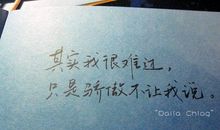 其实我很难过，
只是骄傲不让我说。
"Dalla Chlag"